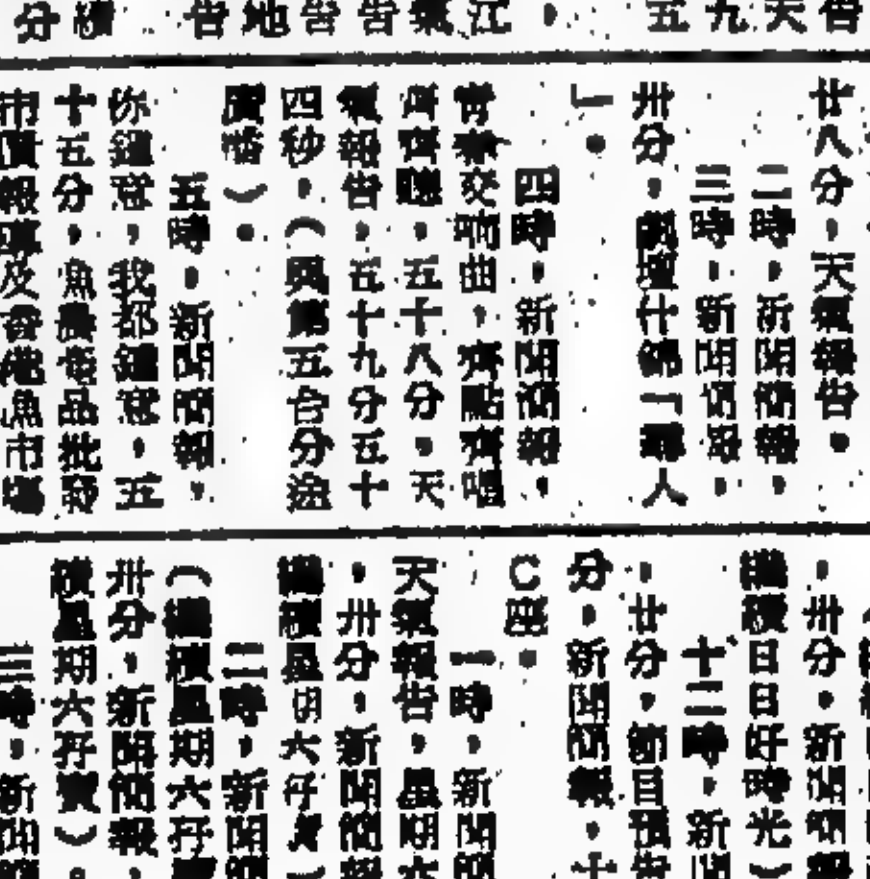 告
天
九
五
江
氣
告
告
地
告
續
分
廿八分,天氣報告。
二時,新聞簡報。
三時,新聞簡報。
卅分,歌壇什錦「
人
」。
四時,新聞簡報,
青春交响曲,齊點齊唱
齊齊聽,五十八分,天
氣報告,五十九分五十
四秒,(與第五台分途
廣播)。
五時,新聞簡報,
你鐘意,我都鐘意,五
十五分,魚農產品批發
市價報導及香港魚市場
,卅分,新聞簡報
繼續日日好時光)
十二時,新聞
,廿分,節目預告
分,新聞簡報,十
C座。
一時,新聞簡
天氣報告,星期六
,卅分,新聞簡報
繼續星期六孖寶)
二時,新聞簡
(繼續星期六孖寶
卅分,新聞簡報,
續星期六孖寶)。
三時,新聞簡